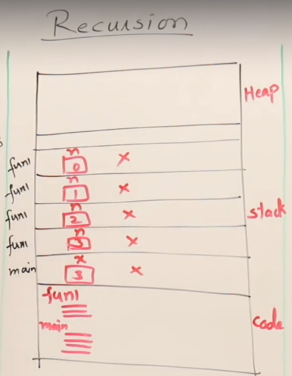 Recursion
Heap
fun1 n 0 ×
fun1 n 1 ×
fun1 n 2 ×
fun1 n 3 ×
main x 3 ×
stack
fun1
main
code